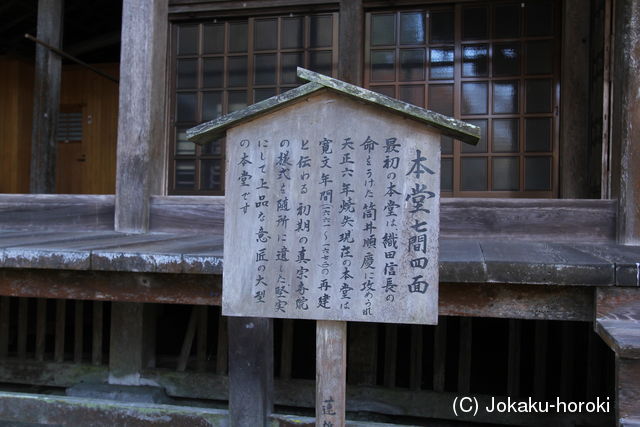 本堂七間四面
最初の本堂は、織田信長の
命をうけた筒井順慶に攻められ
天正六年焼失現在の本堂は
寛文年間(一六六一~一六七三)の再建
と伝わる 初期の真宗寺院
の様式を随所に遺した堅実
にして上品な意匠の大型
の本堂です
(C) Jokaku-horoki